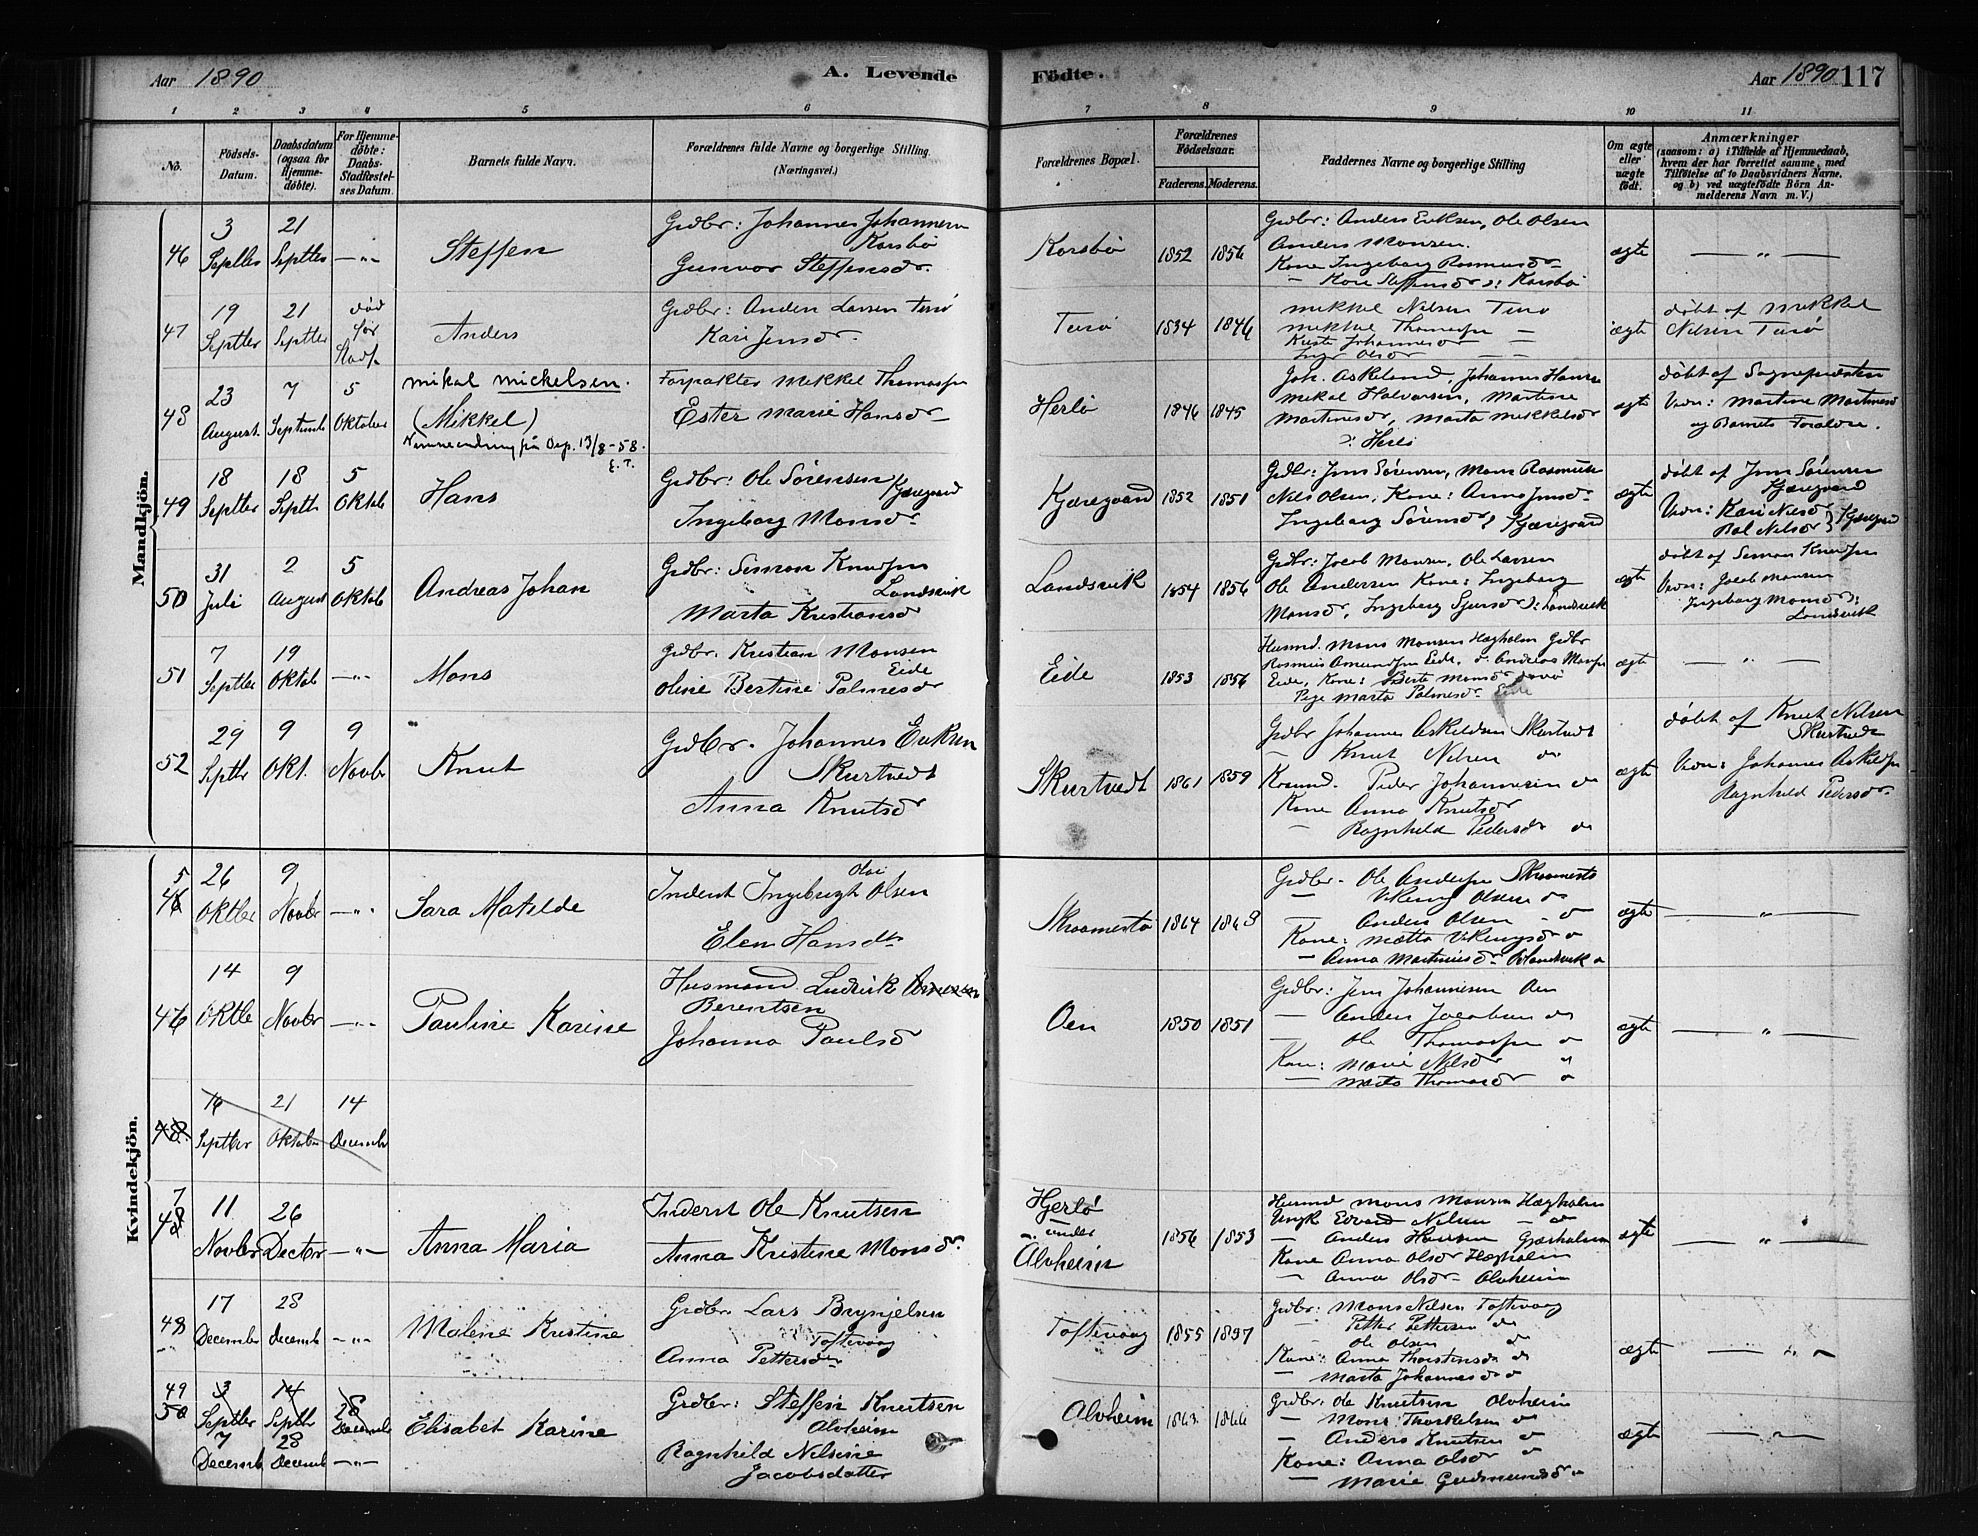 Aar 1890
A. Levende
Födte.
Aar 1890
117
1 2 3 4 5 6 7 8 9 10 11
No.
Födsels-Datum.
Daabsdatum (ogsaa for Hjemme-döbte).
For Hjemme-döbte: Daabs-Stadfæstel-ses Datum.
Barnets fulde Navn.
Forældrenes fulde Navne og borgerlige Stilling.
(Næringsvei.)
Forældrenes Bopæl.
Forældrenes Födselsaar.
Faderens. Moderens.
Faddernes Navne og borgerlige Stilling
Om ægte eller uægte födt.
Anmærkninger
(saasom: a) i Tilfælde af Hjemmedaab,
hvem der har forrettet samme, med
Tilföielse af to Daabsvidners Navne,
og b) ved uægtefödte Börn An-
melderens Navn m. V.)
Mandkjön.
46
3 Septbr
21 Septbr
—"—
Steffen
Grdbr: Johannes Johannesen
Korsbø
Gunvor Steffensdr.
Korsbø
1852 1856
Grdbr: Anders Eriksen, Ole Olsen
Anders Monsen.
Kone Ingeborg Rasmusdr
ægte
— " —
47
19 Septbr
21 Septbr
død før Stadf.
Anders
Grdbr: Anders Larsen
Kari Jensdr.
1834 1846
Mikkel Nilsen
Mikkel Thomassen —
ægte
døbt af Mikkel
Nilsen
48
23 August.
7 Septembr
5 Oktober
Mikal Mickelsen.
(Mikkel)
Navneendring på Dep. 13/8-58.
E.T.
Forpakter Mikkel Thomassen
Ester Marie Hansdr
Herlø
1846 1845
Joh. Askeland, Johannes Hansen
Mikal Halvorsen, Martine
Martinusdr, Marta Mikkelsdr
Herlø
ægte
døbt af Sognepræsten
Vidn: Martine Martinusdr
og Barnets Forældre.
49
18 Septbr
18 Septbr
5 Oktob
Hans
Grdbr: Ole Sørensen
Kjæregaard
Ingeborg Monsdr
Kjæregaard
1852 1851
Grdbr: Jens Sørensen, Mons Rasmussen
Nils Olsen, Kone: Anna Jensdr
Ingeborg Sørensdr, Kjæregaard
ægte
døbt af Jens Sørensen
Kjæregaard
Vidn: Kari Nilsdr
Nilsdr Kjæregaard
50
31 Juli
2 August
5 Oktob
Andreas Johan
Grdbr: Simon Knudsen
Landsvik
Marta Kristiansdr
Landsvik
1854 1856
Grdbr: Jacob Monsen, Ole Larsen
Ole Andersen Kone: Ingeborg
Monsdr, Ingeborg Sjursdr: Landsvik
ægte
døbt af Simon Knudsen
Vidn: Jacob Monsen
Ingeborg Monsdr:
Landsvik
51
7 Septbr
19 Oktob
—"—
Mons
Grdbr. Kristian Monsen
Eide
Oline Bertine Palmesdr
Eide
1853 1856
Husmd. Mons Monsen Hægholm Grdbr
Rasmus Amundsen Eide, Andreas Monsen
Eide, Kone: Berte Monsdr
Pige Marta Palmesdr Eide
ægte
— " —
52
29 Septbr
9 Okt.
9 Novbr
Knut
Grdbr. Johannes Eriksen
Skurtvedt
Anna Knutsdr
Skurtvedt
1861 1859
Grdbr Johannes Askeldsen Skurtvedt
— Knut Nilsen do
Peder Johannesen do
Kone Anna Knutsdr
— Ragnhild Pedersdr do
ægte
døbt af Knut Nilsen
Skurtvedt
Vidn: Johannes Askeldsen
Ragnhild Pedersdr.
Kvindekjön.
45
26 Oktbr
9 Novbr
—"—
Sara Matilde
Inderst Ingebrigt Olsen
Elen Hansdtr
1864 1863
Grdbr. Ole Andersen
— Viking Olsen do
— Anders Olsen do
Kone: Mætta Vikingsdr do
— Anna Martinusdr
ægte
— " —
46
14 Oktbr
9 Novbr
—"—
Pauline Karine
Husmand Ludvik
Berentsen
Johanna Paulsdr
Oen
1850 1851
Grdbr: Jens Johannesen Oen
— Anders Jacobsen do
— Ole Thomassen do
Kone: Marie Nilsdr do
— Marta Thomasdr do
ægte
— " —
48.
16 Septbr
21 Oktober
14 Decembr
47
11 Novbr
26 Decbr
—"—
Anna Maria
Inderst Ole Knutsen
Anna Kristine Monsdr.
Hjerlø
under
Alvheim
1856 1853
Husmd Mons Monsen Hægholm
Ungk Edvard Nilsen — do
— Anders Hansen
Kone Anna Olsdr Hægholm
— Anna Olsdr Alvheim
ægte
— " —
48
17 December
28 Decemb
—"—
Malene Kristine
Grdbr. Lars Brynjelsen
Toftevaag
Anna Pettersdr
Toftevaag
1855 1857
Grdbr: Mons Nilsen Toftevaag
— Petter Pettersen do
— Ole Olsen do
Kone: Anna Thorstensdr do
— Marta Johannesdr do
ægte
— " —
49
50
3 Septbr
14 Septbr
28 Decembr
7 Decemb
28 Decemb
—"—
Elisabet Karine
Grdbr: Steffen Knutsen
Alvheim
Ragnhild Nilsine
Jacobsdatter
Alvheim
1863 1866
Grdbr. Ole Knutsen Alvheim
— Mons Thorkelsen do
— Anders Knutsen do
Kone: Anna Olsdr do
— Marie Gudmundsdr do
ægte
— " —